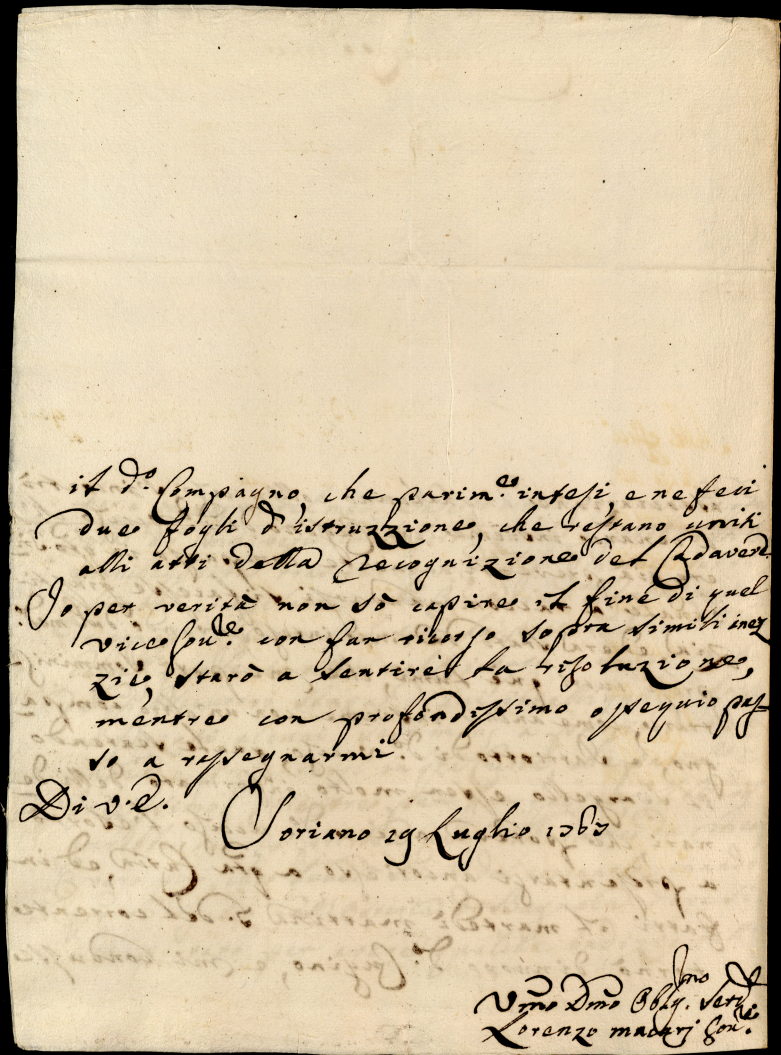 il d.º Compagno, che parim.e intesi, e ne feci
due fogli d'istruzzione, che restano uniti
alli atti della recognizione del Cadavere.
Io per verità non sò capire il fine di quel
vice Gou.re con far ricorso sopra simili inez
zie, starò a sentire la risoluzione,
mentre con profondissimo ossequio pas-
so a rassegnarmi
Di V.E.
Soriano 29 Luglio 1767
Vmo Dmo Oblig.mo Serv.
Lorenzo Macarj Gou.re